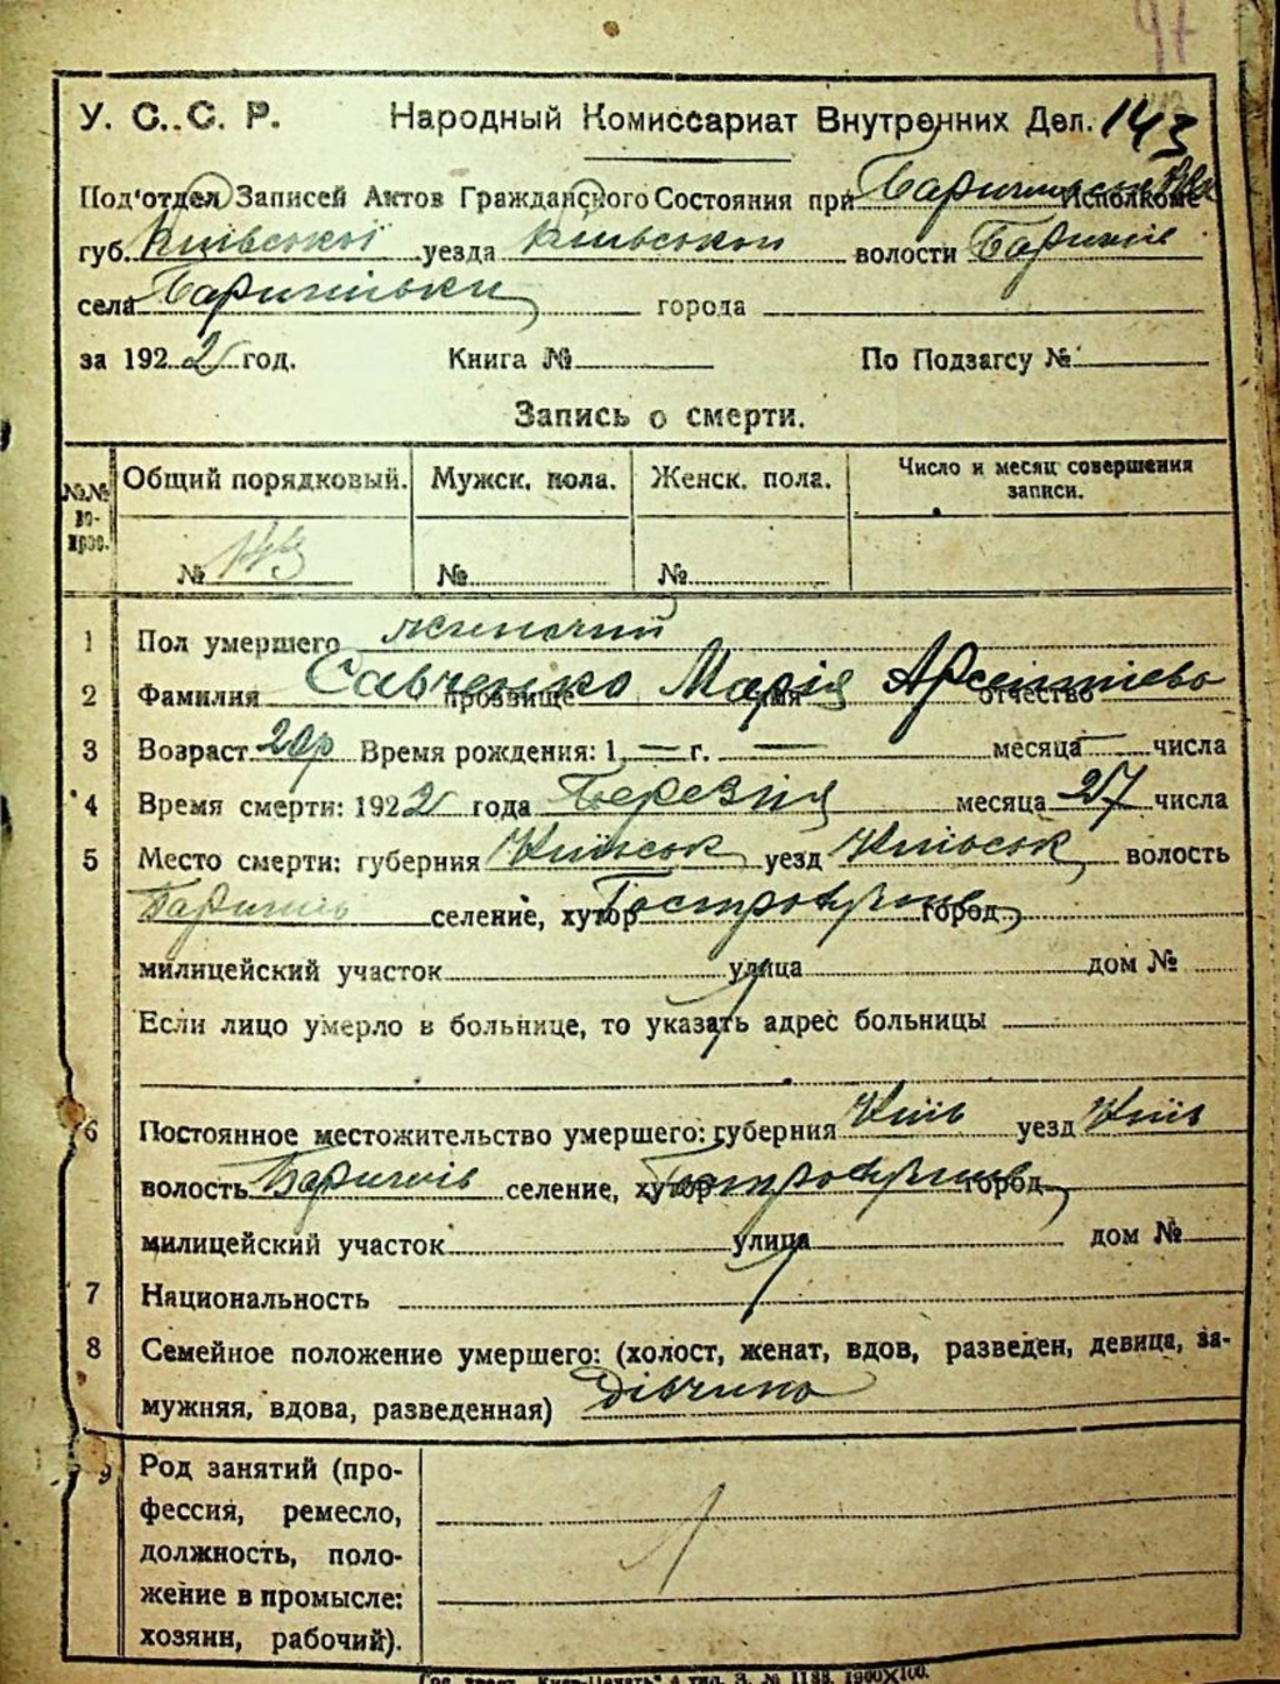 97
У. С. С. Р. Народный Комиссариат Внутренних Дел. 143
Под'отдел Записей Актов Гражданского Состояния при Исполкоме
губ. Київської уезда Київської волости Баришів
села Баришівки города
за 1922 год. Книга № По Подзагсу №
Запись о смерти.
№№ во-прос. Общий порядковый. Мужск. пола. Женск. пола. Число и месяц совершения записи.
№ 143 № №
1 Пол умершего жиночий
2 Фамилия Савченко прозвище Марія имя Арсентіево отчество
3 Возраст 20р Время рождения: 1 — г. — месяца — числа
4 Время смерти: 1922 года Березня месяца 27 числа
5 Место смерти: губерния Київськ уезд Київськ волость
Баришів селение, хутор город
милицейский участок улица дом №
Если лицо умерло в больнице, то указать адрес больницы
6 Постоянное местожительство умершего: губерния Київ уезд Київ
волость Баришів селение, хутор город
милицейский участок улица дом №
7 Национальность
8 Семейное положение умершего: (холост, женат, вдов, разведен, девица, за-
мужняя, вдова, разведенная) дівчина
9 Род занятий (про-
фессия, ремесло,
должность, поло-
жение в промысле:
хозяин, рабочий).
№ 1188. 1900Х100.